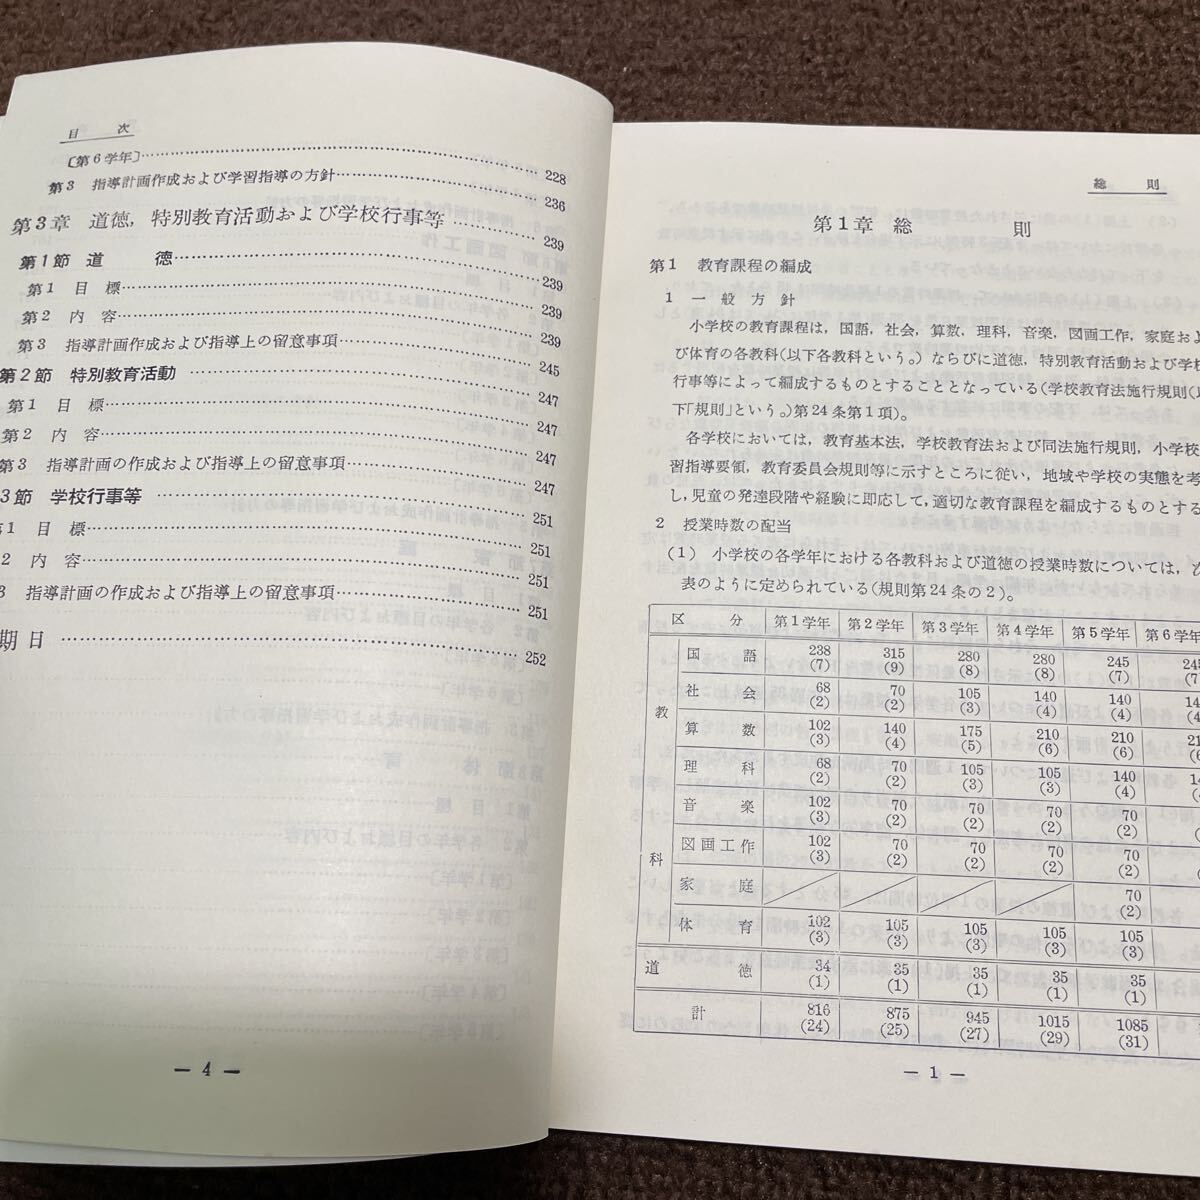 目　　次
〔第6学年〕……228
第3　指導計画作成および学習指導の方針……236
第3章　道徳，特別教育活動および学校行事等……239
第1節　道　　徳……239
第1　目　標……239
第2　内　容……239
第3　指導計画作成および指導上の留意事項……245
第2節　特別教育活動……247
第1　目　標……247
第2　内　容……247
第3　指導計画の作成および指導上の留意事項……247
3節　学校行事等……251
1　目　標……251
2　内　容……251
3　指導計画の作成および指導上の留意事項……251
期日……252
— 4 —
総　　則
第1章　総　　則
第1　教育課程の編成
1　一　般　方　針
小学校の教育課程は，国語，社会，算数，理科，音楽，図画工作，家庭およ
び体育の各教科(以下各教科という。)ならびに道徳，特別教育活動および学校
行事等によって編成するものとすることとなっている(学校教育法施行規則(以
下「規則」という。)第24条第1項)。
各学校においては，教育基本法，学校教育法および同法施行規則，小学校
習指導要領，教育委員会規則等に示すところに従い，地域や学校の実態を考
し，児童の発達段階や経験に即応して，適切な教育課程を編成するものとする
2　授業時数の配当
(1)　小学校の各学年における各教科および道徳の授業時数については，次
表のように定められている(規則第24条の2)。
区　　分　第1学年　第2学年　第3学年　第4学年　第5学年　第6学年
教科
国　　語　238(7)　315(9)　280(8)　280(8)　245(7)　245(7)
社　　会　68(2)　70(2)　105(3)　140(4)　140(4)
算　　数　102(3)　140(4)　175(5)　210(6)　210(6)
理　　科　68(2)　70(2)　105(3)　105(3)　140(4)
音　　楽　102(3)　70(2)　70(2)　70(2)　70(2)
図画工作　102(3)　70(2)　70(2)　70(2)　70(2)
家　　庭　70(2)
体　　育　102(3)　105(3)　105(3)　105(3)　105(3)
道　　徳　34(1)　35(1)　35(1)　35(1)　35(1)
計　816(24)　875(25)　945(27)　1015(29)　1085(31)
— 1 —